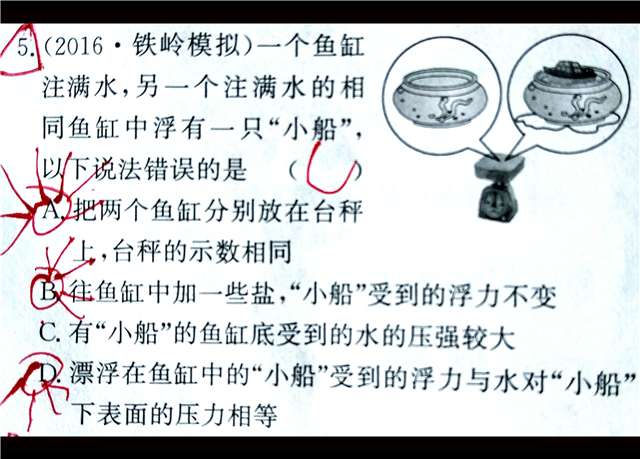 5.(2016·铁岭模拟)一个鱼缸
注满水,另一个注满水的相
同鱼缸中浮有一只“小船”,
以下说法错误的是 ( )
A.把两个鱼缸分别放在台秤
上,台秤的示数相同
B.往鱼缸中加一些盐,“小船”受到的浮力不变
C.有“小船”的鱼缸底受到的水的压强较大
D.漂浮在鱼缸中的“小船”受到的浮力与水对“小船”
下表面的压力相等